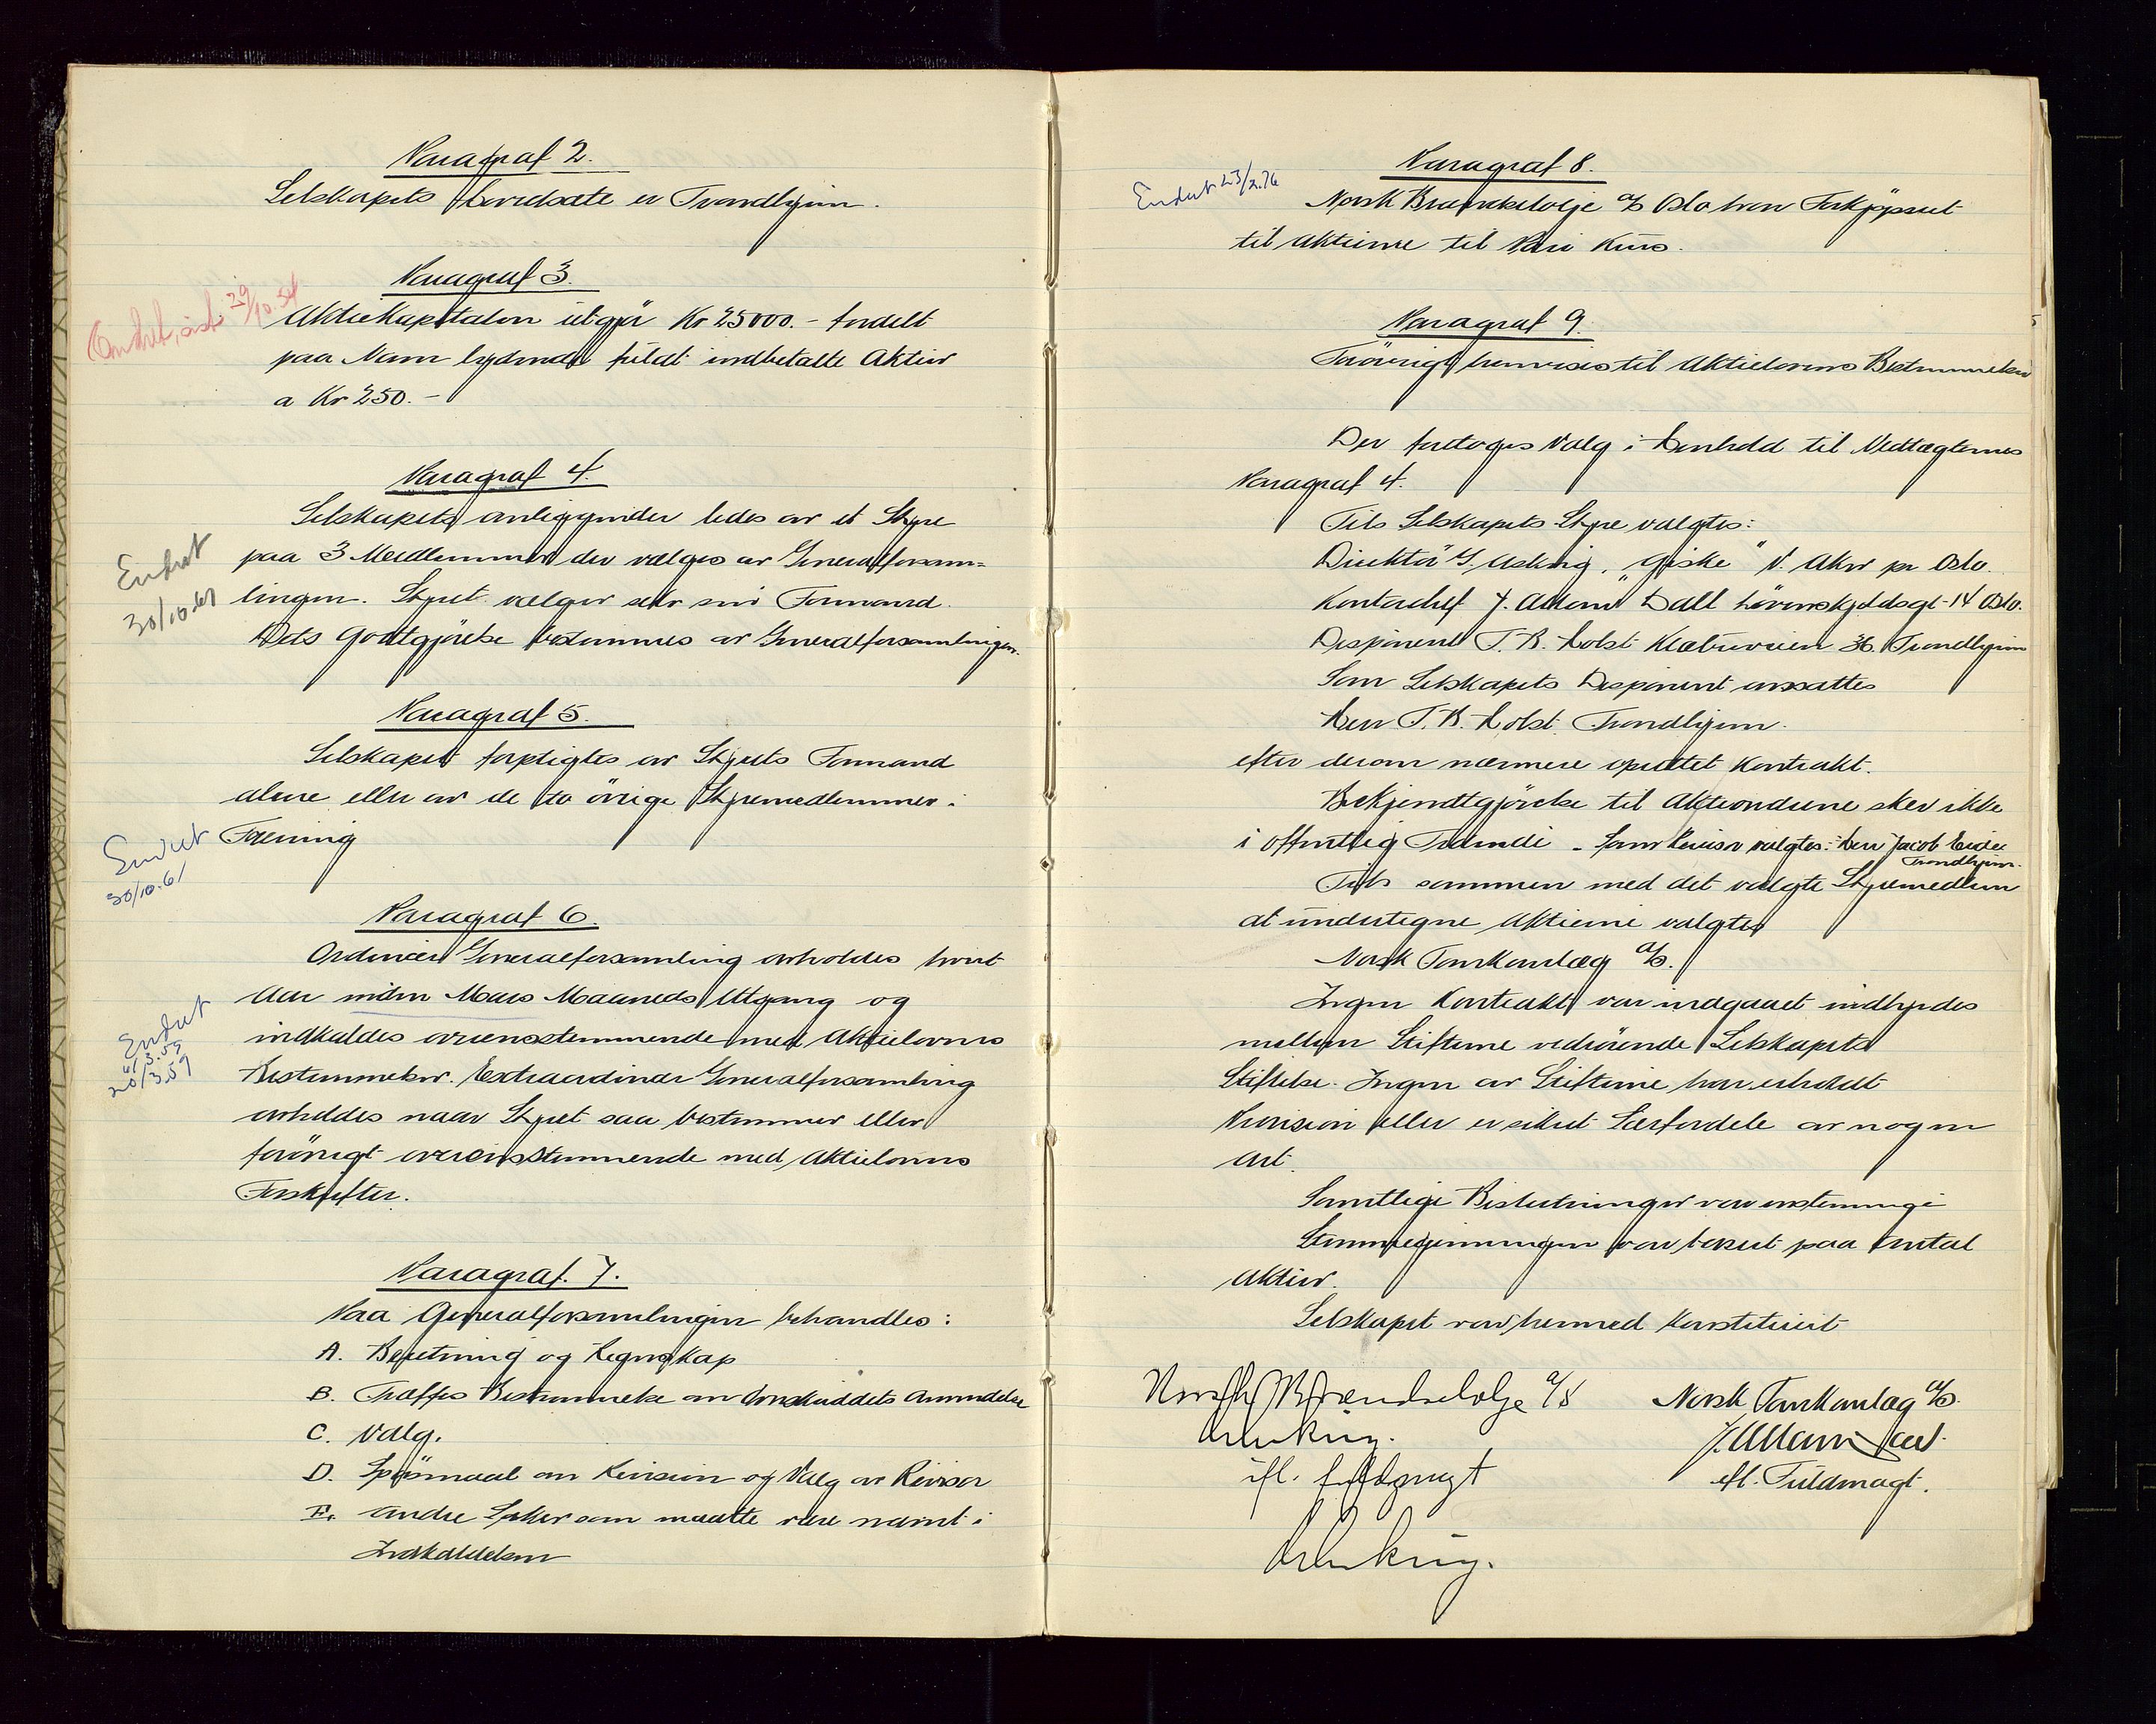 Paragraf 2.
Selskapets hovedsæte er Trondhjem.
Paragraf 3.
Ændret, sist 29/10.54
Aktiekapitalen utgjør Kr 25000.- fordelt
paa Navn lydende fuldt indbetalte Aktier
a Kr 250.-
Paragraf 4.
Selskapets anliggender ledes av et Styre
Endret
30/10.61
paa 3 Medlemmer der vælges av Generalforsam=
lingen. Styret vælger selv sin Formand.
Dets Godtgjörelse bestemmes av Generalforsamlingen.
Paragraf 5.
Selskapet forpligtes av Styrets Formand
alene eller av de to övrige Styremedlemmer i
Endret
30/10.61
Forening
Paragraf 6.
Ordinær Generalforsamling avholdes hvert
Endret
6/3.59
20/3.59
Aar inden Mars Maaneds Utgang og
indkaldes overensstemmende med Aktielovens
Bestemmelser. Extraordinær Generalforsamling
avholdes naar Styret saa bestemmer eller
forövrigt overensstemmende med Aktielovens
Forskrifter.
Paragraf. 7.
Paa Generalforsamlingen behandles:
A. Beretning og Regnskap
B. Træffes Bestemmelse om Overskuddets Anvendelse
C. Valg.
D. Spörsmaal om Revision og Valg av Revisor
E. Andre Saker som maatte være nævnt i
Indkaldelsen
Paragraf 8.
Endret 23/2.76
Norsk Brændselolje A/S Oslo har Forkjöpsret
til Aktierne til Pari Kurs.
Paragraf 9.
Forövrigt henvises til Aktielovens Bestemmelser
Der foretoges Valg i Henhold til Vedtægternes
Paragraf 4.
Til Selskapets Styre valgtes:
Direktör G. Askvig, "Giske" V. Aker pr Oslo.
Kontorchef J. Adam Dall Lövenskjoldsgt 14 Oslo.
Disponent T. B. Holst Klæbuveien 36. Trondhjem
Som Selskapets Disponent ansattes
Herr T. B. Holst. Trondhjem.
efter derom nærmere oprettet Kontrakt.
Bekjendtgjörelse til Aktionærene sker ikke
i offentlig Tidende - Som Revisor valgtes: Herr Jacob Eide
Trondhjem.
Til sammen med det valgte Styremedlem
at undertegne Aktierne valgtes
Norsk Tankanlæg A/S.
Ingen Kontrakt var indgaaet indbyrdes
mellem Stifterne vedrörende Selskapets
Stiftelse. Ingen av Stifterne har erholdt
Provision eller er sikret Særfordele av nogen
Art.
Samtlige Beslutninger var enstemmige
Stemmegivningen var basert paa Antal
Aktier.
Selskapet var hermed konstitueret
Norsk Brændselolje A/S
Norsk Tankanlæg A/S.
Askvig.
J. Adam Dall.
ifl. fuldmagt
efl. Fuldmagt.
Askvig.